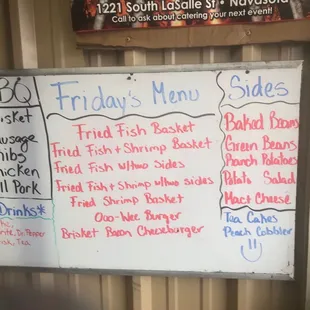 1221 South LaSalle St • Navasota
Call to ask about catering your next event!
BQ
isket
usage
ribs
icken
ll Pork
Drinks
Dr. Pepper
Tea
Friday's Menu
Fried Fish Basket
Fried Fish + Shrimp Basket
Fried Fish w/two sides
Fried Fish + Shrimp w/two sides
Fried Shrimp Basket
Ooo-Wee Burger
Brisket Bacon Cheeseburger
Sides
Baked Beans
Green Beans
Ranch Potatoes
Potato Salad
Mac + Cheese
Tea Cakes
Peach Cobbler